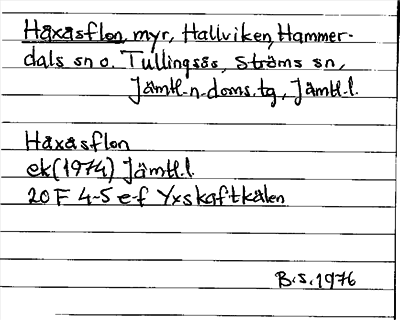 Håxåsflon, myr, Hallviken, Hammer-
dals sn o. Tullingsås, Ströms sn,
Jämtl. n. doms. tg, Jämtl. l.
Håxåsflon
ek (1974) Jämtl. l.
20 F 4-5 e-f Yxskaftkälen
B. S. 1976